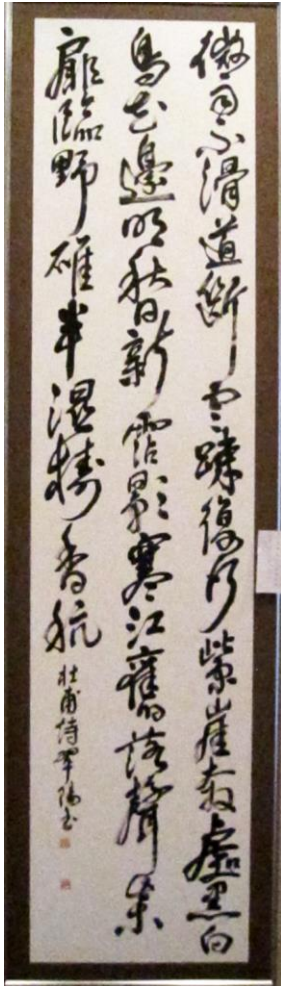 微雨不滑道斷雲疎復行紫崖奔處黑白
鳥去邊明秋日新霑影寒江舊落聲柴
扉臨野碓半湿擣香秔
杜甫詩 書